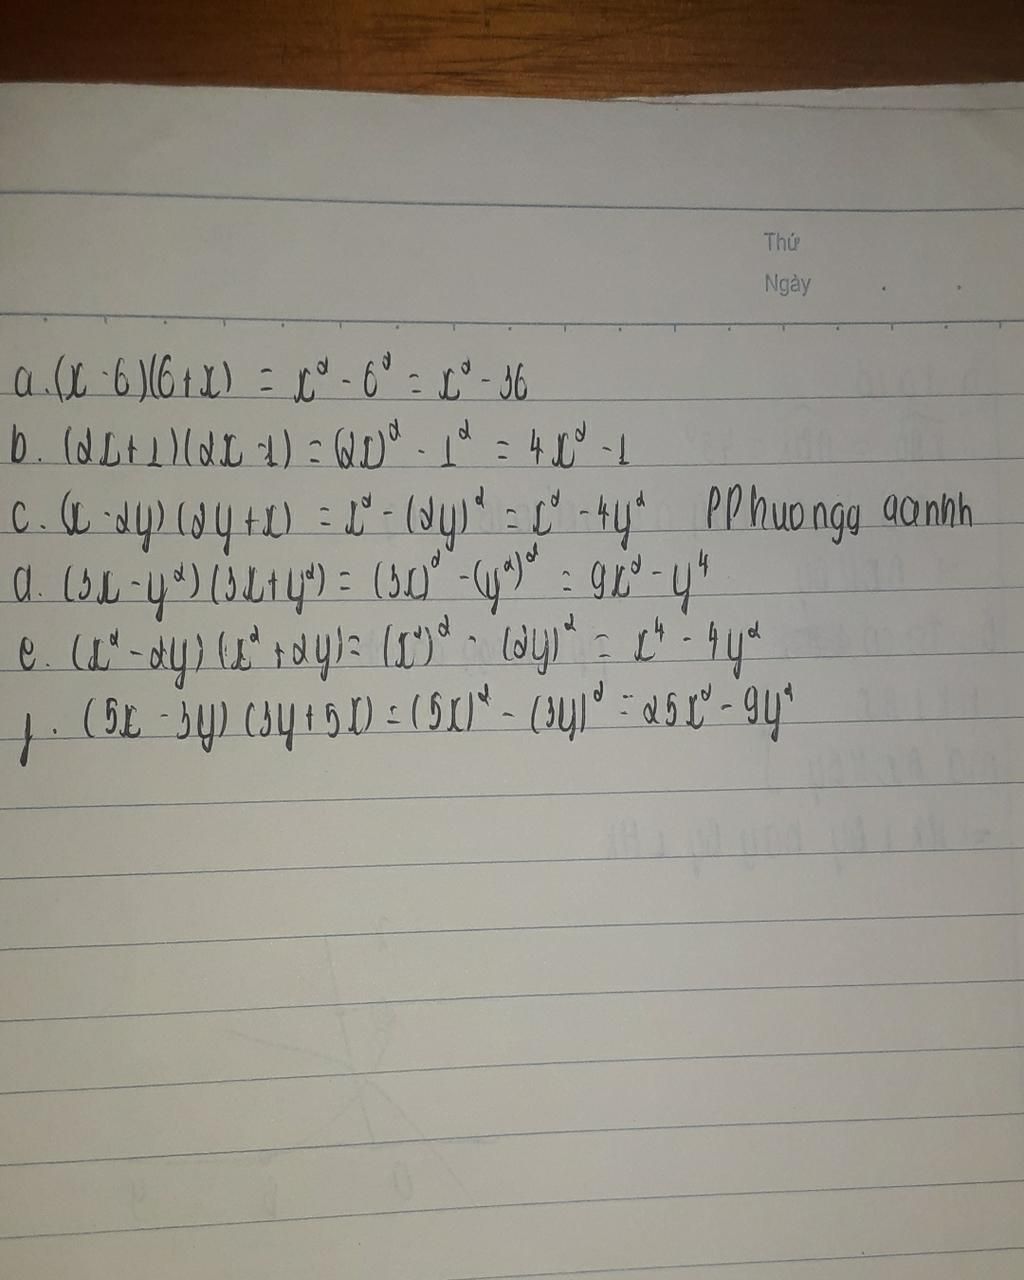 Thứ
Ngày
a. (x - 6)(6 + x) = x² - 6² = x² - 36
b. (2x + 1)(2x - 1) = (2x)² - 1² = 4x² - 1
c. (x - 2y)(2y + x) = x² - (2y)² = x² - 4y² PPhuongg aannhh
d. (3x - y²)(3x + y²) = (3x)² - (y²)² = 9x² - y⁴
e. (x² - 2y)(x² + 2y) = (x²)² - (2y)² = x⁴ - 4y²
f. (5x - 3y)(3y + 5x) = (5x)² - (3y)² = 25x² - 9y²